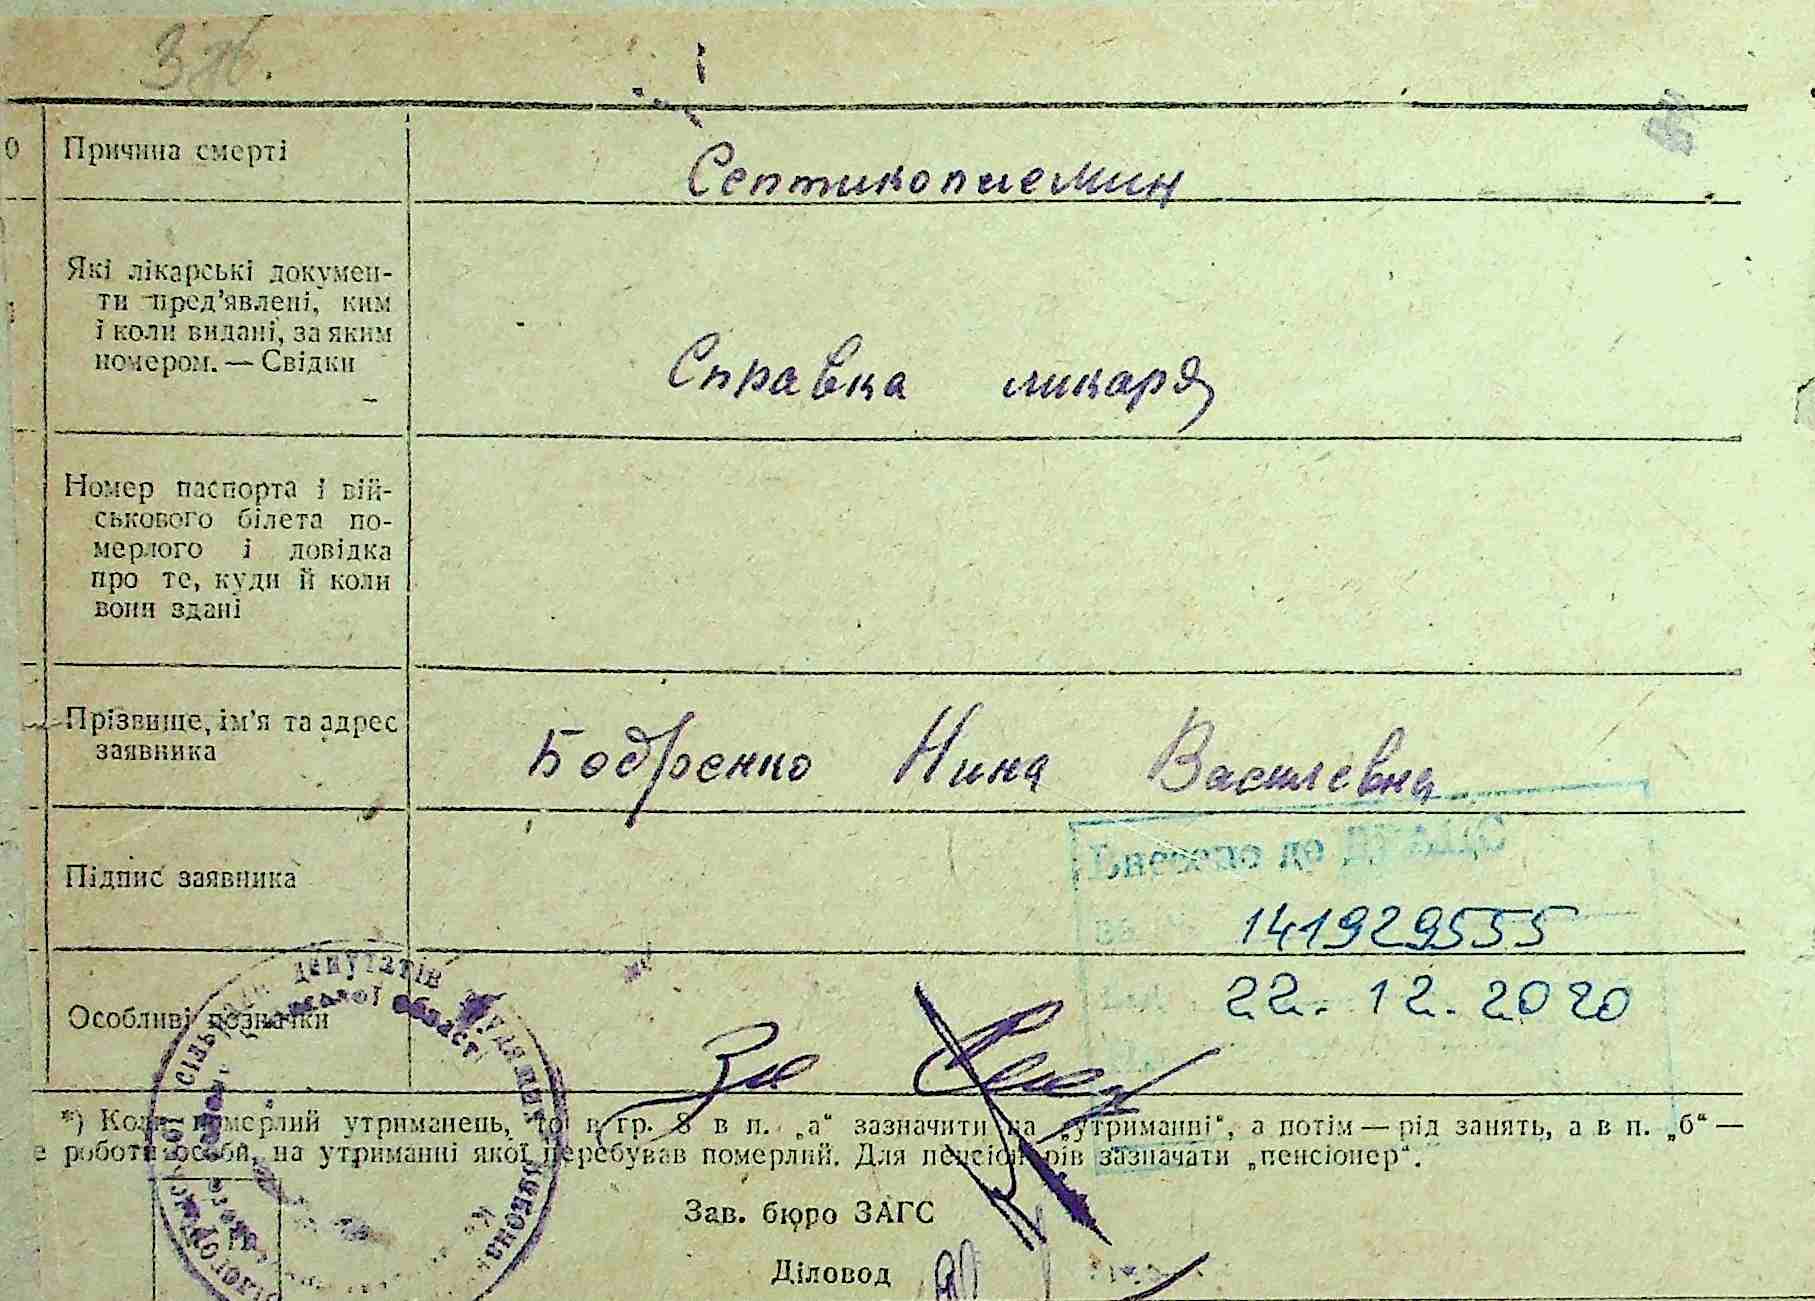 Причина смерті
Септикопиемин
Які лікарські докумен-
ти пред'явлені, ким
і коли видані, за яким
номером. — Свідки
Справка ликаря
Номер паспорта і вій-
ськового білета по-
мерлого і довідка
про те, куди й коли
вони здані
Прізвище, ім'я та адрес
заявника
Бодренко Нина Василевна
Підпис заявника
Внесено до
141929555
22.12.2020
Особливі позначки
депутатів трудящих
*) Коли померлий утриманець, то в гр. 8 в п. „а“ зазначити на „утриманні“, а потім — рід занять, а в п. „б“ —
е роботи особи, на утриманні якої перебував померлий. Для пенсіонерів зазначати „пенсіонер“.
Зав. бюро ЗАГС
Діловод